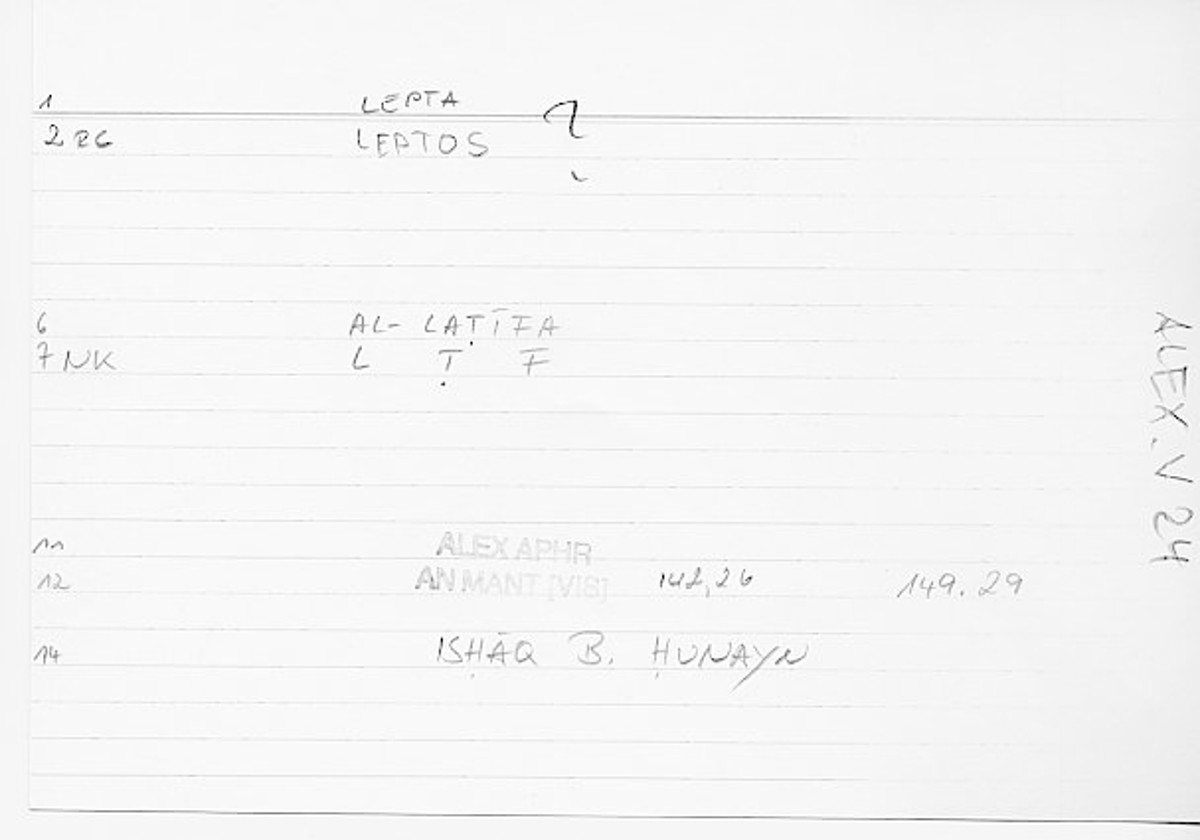 1 LEPTA ?
2 RG LEPTOS
6 AL- LAṬĪFA
7 NK L Ṭ F
11 ALEX APHR
12 AN MANT [VIS] 142,26 149.29
14 ISḤĀQ B. ḤUNAYN
ALEX. V 24